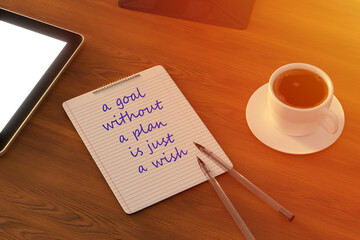 a goal
without
a plan
is just
a wish